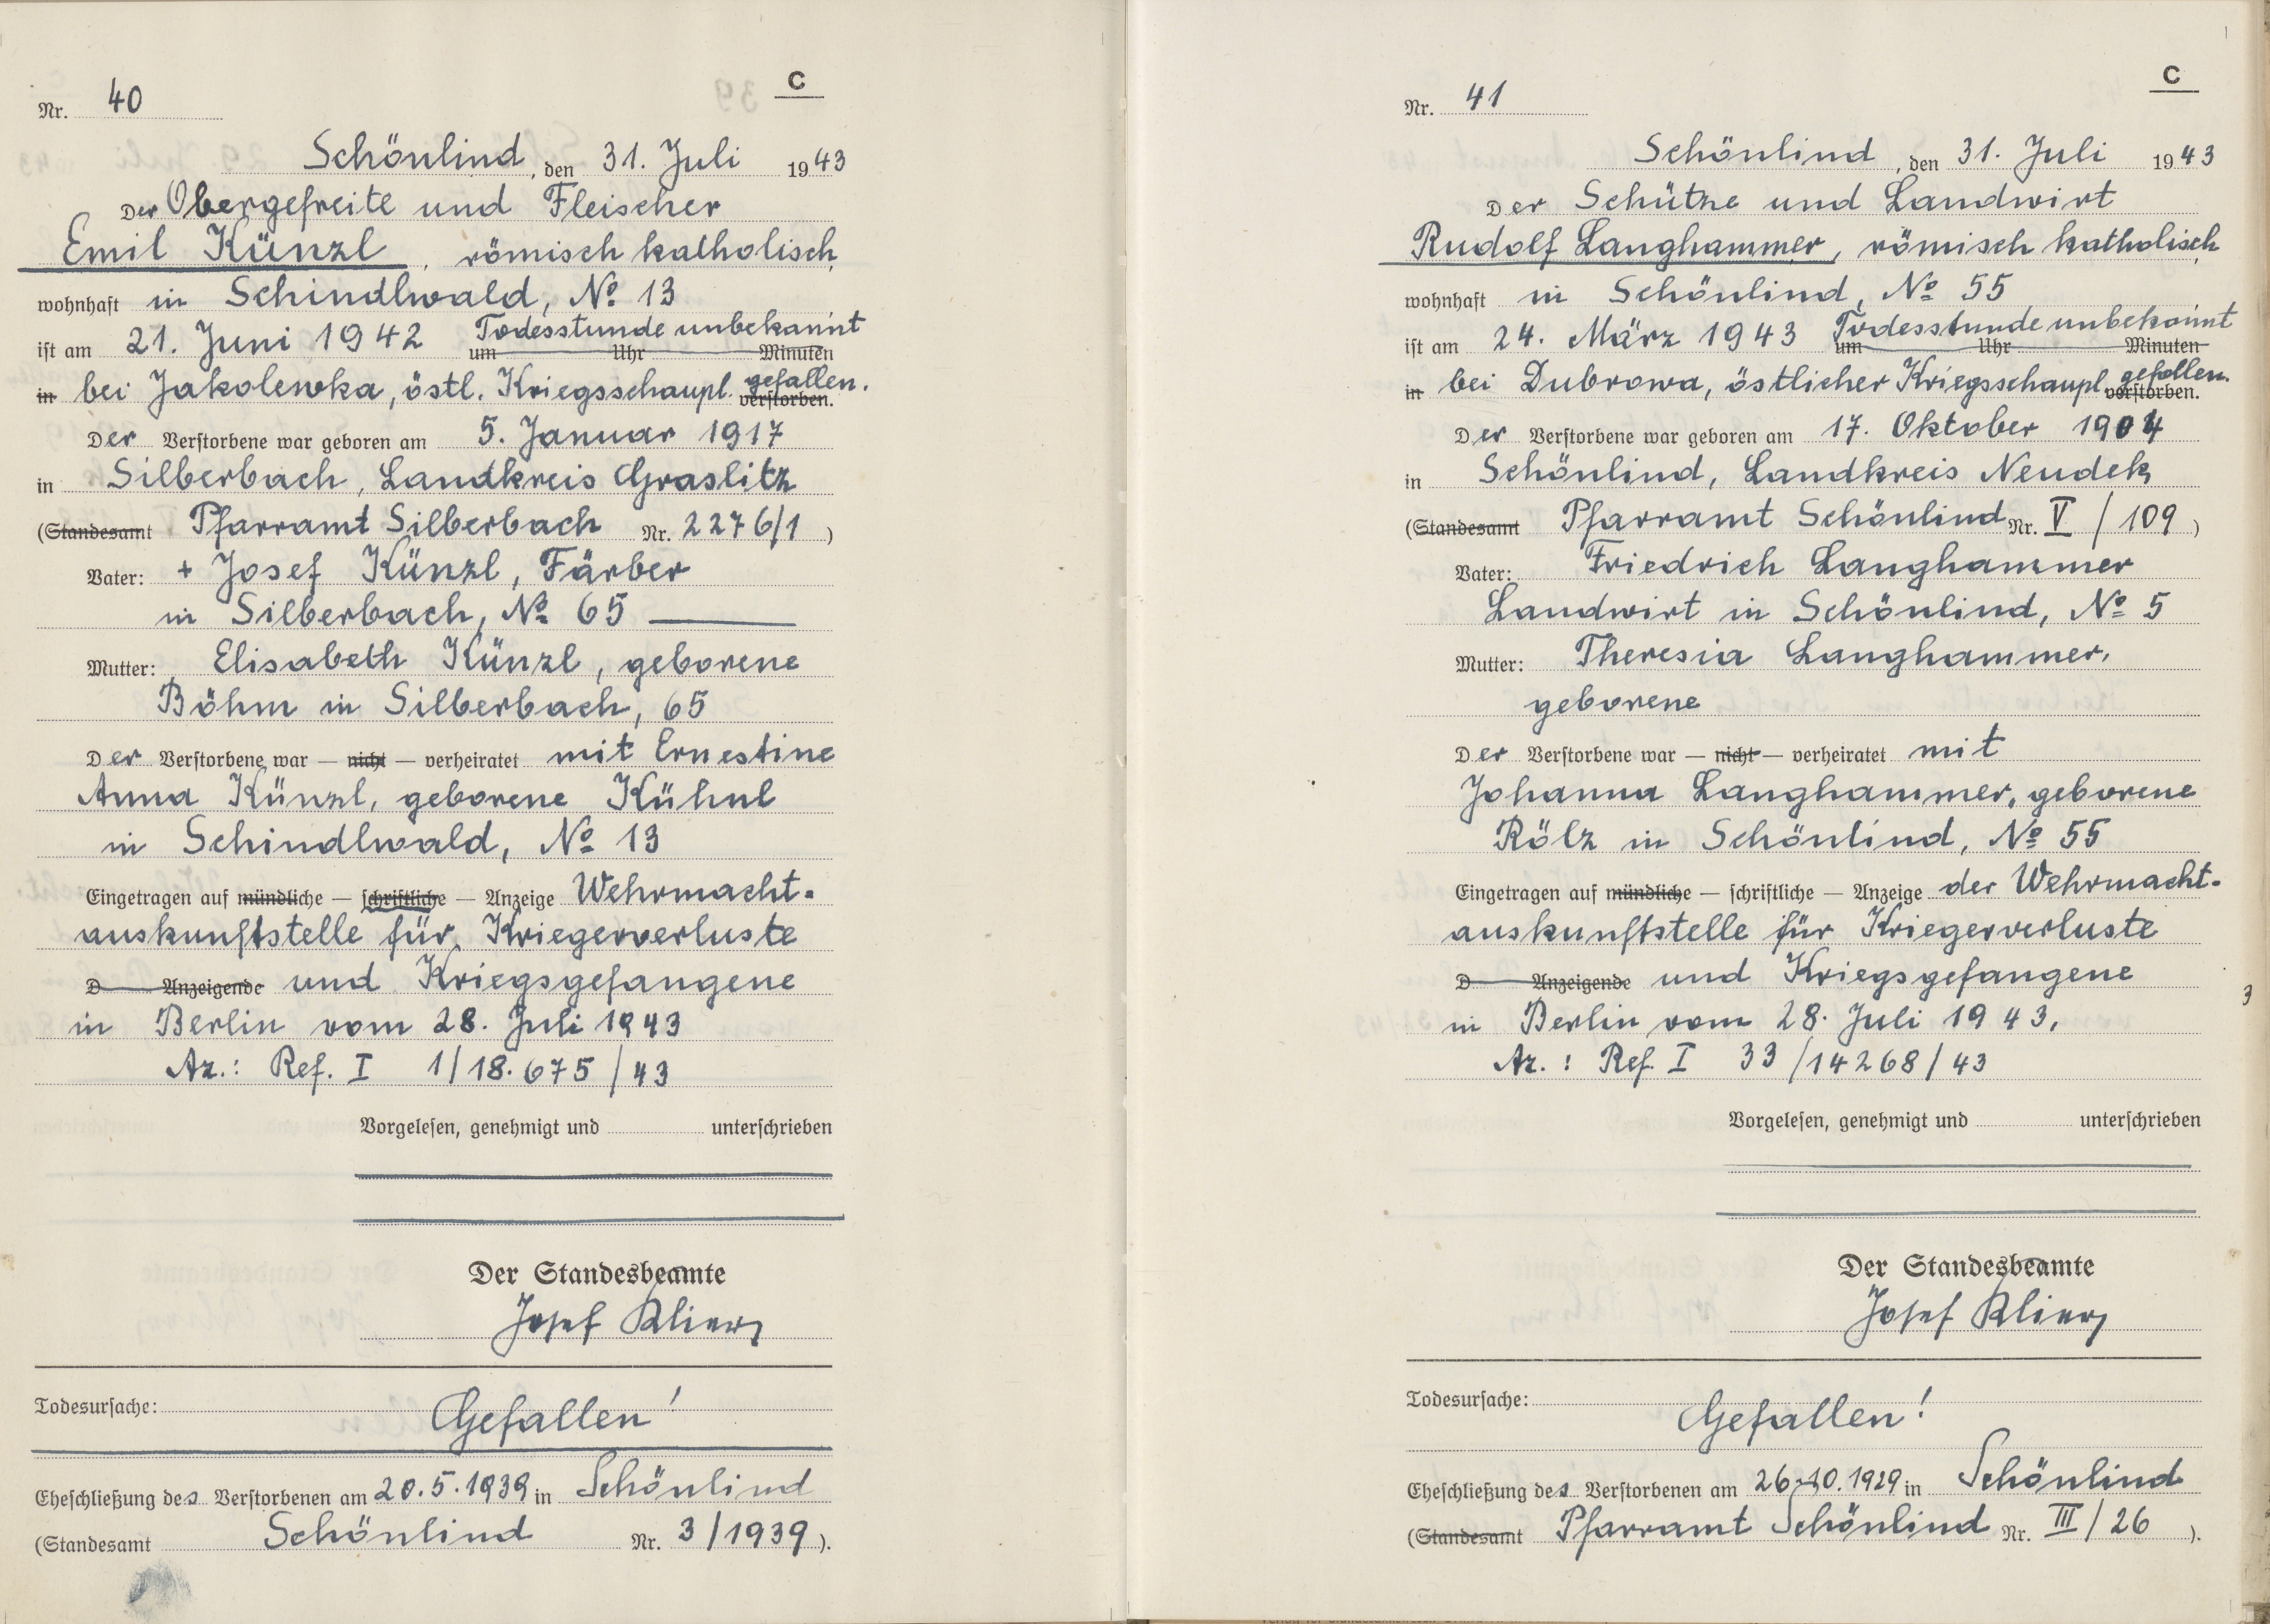 C
Nr. 40
Schönlind, den 31. Juli 1943
Der Obergefreite und Fleischer
Emil Künzl, römisch katholisch,
wohnhaft in Schindlwald, No 13
ist am 21. Juni 1942 Todesstunde unbekannt
um Uhr Minuten
in bei Jakolewka, östl. Kriegsschaupl. gefallen.
verstorben.
Der Verstorbene war geboren am 5. Januar 1917
in Silberbach, Landkreis Graslitz
(Standesamt Pfarramt Silberbach Nr. 2276/1)
Vater: + Josef Künzl, Färber
in Silberbach, No 65
Mutter: Elisabeth Künzl, geborene
Böhm in Silberbach, 65
Der Verstorbene war — nicht — verheiratet mit Ernestine
Anna Künzl, geborene Kühnl
in Schindlwald, No 13
Eingetragen auf mündliche — schriftliche — Anzeige Wehrmacht-
auskunftstelle für Kriegerverluste
D Anzeigende und Kriegsgefangene
in Berlin vom 28. Juli 1943
Az.: Ref. I 1/18.675/43
Vorgelesen, genehmigt und unterschrieben
Der Standesbeamte
Josef Klier
Todesursache: Gefallen!
Eheschließung des Verstorbenen am 20.5.1939 in Schönlind
(Standesamt Schönlind Nr. 3/1939).
C
Nr. 41
Schönlind, den 31. Juli 1943
Der Schütze und Landwirt
Rudolf Langhammer, römisch katholisch,
wohnhaft in Schönlind, No 55
ist am 24. März 1943 Todesstunde unbekannt
um Uhr Minuten
in bei Dubrowa, östlicher Kriegsschaupl. gefallen.
verstorben.
Der Verstorbene war geboren am 17. Oktober 1904
in Schönlind, Landkreis Neudek
(Standesamt Pfarramt Schönlind Nr. V/109)
Vater: Friedrich Langhammer
Landwirt in Schönlind, No 5
Mutter: Theresia Langhammer,
geborene
Der Verstorbene war — nicht — verheiratet mit
Johanna Langhammer, geborene
Rölz in Schönlind, No 55
Eingetragen auf mündliche — schriftliche — Anzeige der Wehrmacht-
auskunftstelle für Kriegerverluste
D Anzeigende und Kriegsgefangene
in Berlin vom 28. Juli 1943.
Az.: Ref. I 33/14268/43
Vorgelesen, genehmigt und unterschrieben
Der Standesbeamte
Josef Klier
Todesursache:
Gefallen!
Eheschließung des Verstorbenen am 26.10.1929 in Schönlind
(Standesamt Pfarramt Schönlind Nr. III/26).